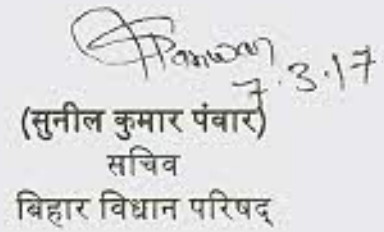 Panwar
7.3.17
(सुनील कुमार पंवार)
सचिव
बिहार विधान परिषद्